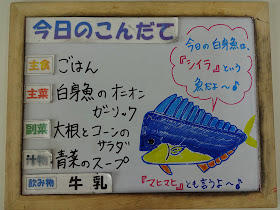 今日のこんだて
主食 ごはん
主菜 白身魚のオニオン
ガーリック
副菜 大根とコーンの
サラダ
汁物 青菜のスープ
飲み物 牛乳
今日の白身魚は、
『シイラ』という
魚だよ〜♪
『マヒマヒ』とも言うよ〜♪